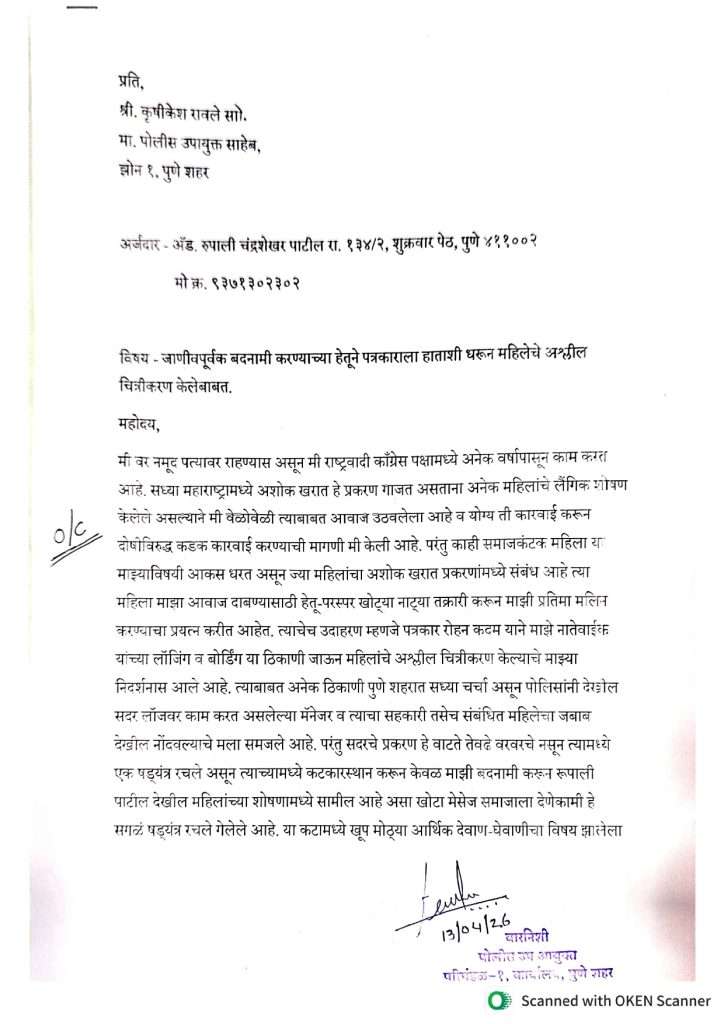 प्रति,
श्री. कृषीकेश रावले सो.
मा. पोलीस उपायुक्त साहेब,
झोन १, पुणे शहर
अर्जदार - ॲड. रुपाली चंद्रशेखर पाटील रा. १३४/२, शुक्रवार पेठ, पुणे ४११००२
मो क्र. ९३७१३०२३०२
विषय - जाणीवपूर्वक बदनामी करण्याच्या हेतूने पत्रकाराला हाताशी धरून महिलेचे अश्लील
चित्रीकरण केलेबाबत.
महोदय,
मी वर नमूद पत्यावर राहण्यास असून मी राष्ट्रवादी काँग्रेस पक्षामध्ये अनेक वर्षापासून काम करत
आहे. सध्या महाराष्ट्रामध्ये अशोक खरात हे प्रकरण गाजत असताना अनेक महिलांचे लैंगिक शोषण
केलेले असल्याने मी वेळोवेळी त्याबाबत आवाज उठवलेला आहे व योग्य ती कारवाई करून
o/c
दोषीविरुद्ध कडक कारवाई करण्याची मागणी मी केली आहे. परंतु काही समाजकंटक महिला या
माझ्याविषयी आकस धरत असून ज्या महिलांचा अशोक खरात प्रकरणांमध्ये संबंध आहे त्या
महिला माझा आवाज दाबण्यासाठी हेतू-परस्पर खोट्या नाट्या तक्रारी करून माझी प्रतिमा मलिन
करण्याचा प्रयत्न करीत आहेत. त्याचेच उदाहरण म्हणजे पत्रकार रोहन कदम याने माझे नातेवाईक
यांच्या लॉजिंग व बोर्डिंग या ठिकाणी जाऊन महिलांचे अश्लील चित्रीकरण केल्याचे माझ्या
निदर्शनास आले आहे. त्याबाबत अनेक ठिकाणी पुणे शहरात सध्या चर्चा असून पोलिसांनी देखील
सदर लॉजवर काम करत असलेल्या मॅनेजर व त्याचा सहकारी तसेच संबंधित महिलेचा जबाब
देखील नोंदवल्याचे मला समजले आहे. परंतु सदरचे प्रकरण हे वाटते तेवढे वरवरचे नसून त्यामध्ये
एक षड्यंत्र रचले असून त्याच्यामध्ये कटकारस्थान करून केवळ माझी बदनामी करून रूपाली
पाटील देखील महिलांच्या शोषणामध्ये सामील आहे असा खोटा मेसेज समाजाला देणेकामी हे
सगळं षड्यंत्र रचले गेलेले आहे. या कटामध्ये खूप मोठ्या आर्थिक देवाण-घेवाणीचा विषय झालेला
13/04/26
वारनिशी
पोलीस उप आयुक्त
परिमंडळ-१, कार्यालय, पुणे शहर
Scanned with OKEN Scanner